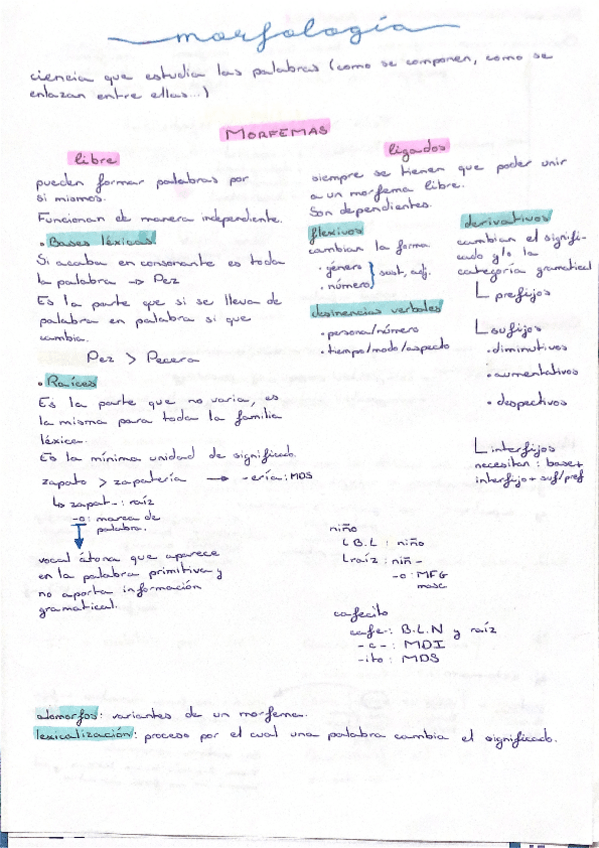 morfología
ciencia que estudia las palabras (como se componen, como se
enlazan entre ellas...)
MORFEMAS
libre
pueden formar palabras por
si mismos.
Funcionan de manera independiente.
• Bases léxicas
Si acaba en consonante es toda
la palabra → Pez
Es la parte que si se lleva de
palabra en palabra si que
cambia.
Pez > Pecera
• Raíces
Es la parte que no varia, es
la misma para toda la familia
léxica.
Es la mínima unidad de significado.
zapato > zapatería → -ería: MDS
↳ zapat-: raíz
-o: marca de
palabra.
vocal átona que aparece
en la palabra primitiva y
no aporta información
gramatical.
ligados
siempre se tienen que poder unir
a un morfema libre.
Son dependientes.
flexivos
cambian la forma
• género
• número } sust, adj.
desinencias verbales
• persona/número
• tiempo/modo/aspecto
derivativos
cambian el signifi-
cado y/o la
categoría gramatical
prefijos
sufijos
• diminutivos
• aumentativos
• despectivos
interfijos
necesitan: base+
interfijo+ suf/pref
niño
B.L: niño
raíz: niñ-
-o: MFG
masc.
cafecito
cafe-: B.L.N y raíz
-c-: MDI
-ito: MDS
alomorfos: variantes de un morfema.
lexicalización: proceso por el cual una palabra cambia el significado.